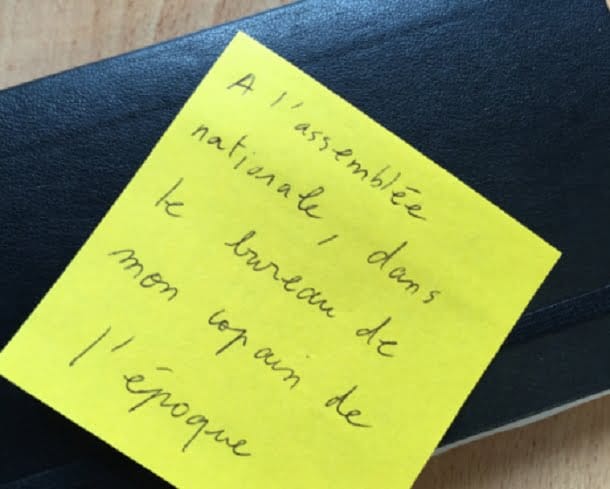 A l'assemblée
nationale, dans
le bureau de
mon copain de
l'époque